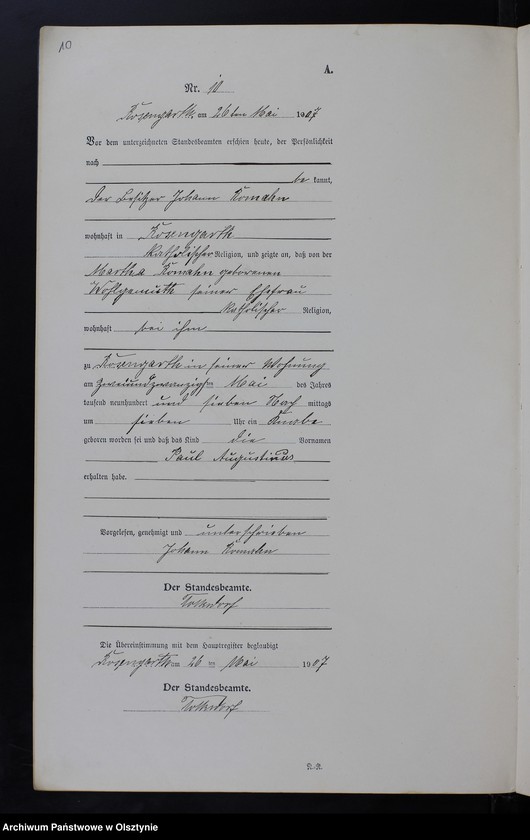 10
A.
Nr. 10
Rosengarth am 26ten Mai 1907
Vor dem unterzeichneten Standesbeamten erschien heute, der Persönlichkeit
nach
be kannt,
der Besitzer Johann Romahn
wohnhaft in Rosengarth
katholischer Religion, und zeigte an, daß von der
Martha Romahn geborenen
Wohlgemuth seiner Ehefrau
katholischer Religion,
wohnhaft bei ihm
zu Rosengarth in seiner Wohnung
am zweiundzwanzigsten Mai des Jahres
tausend neunhundert und sieben Nach mittags
um sieben Uhr ein Knabe
geboren worden sei und daß das Kind die Vornamen
Paul Augustinus
erhalten habe.
Vorgelesen, genehmigt und unterschrieben
Johann Romahn
Der Standesbeamte.
Die Übereinstimmung mit dem Hauptregister beglaubigt
Rosengarth am 26 ten Mai 1907
Der Standesbeamte.
Archiwum Państwowe w Olsztynie